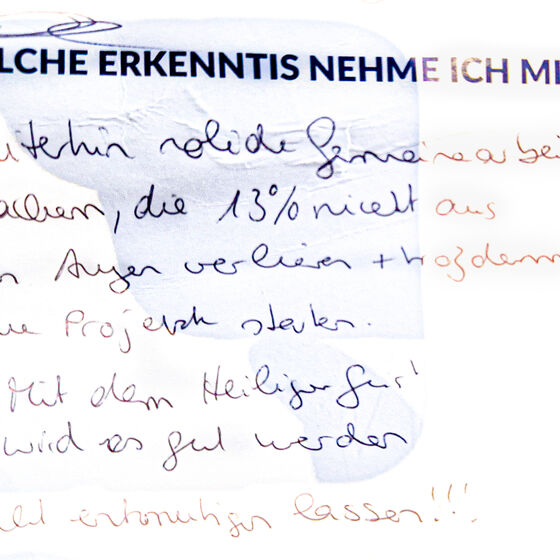 LCHE ERKENNTIS NEHME ICH MI
iterhin solide Gemeinearbei
achen, die 13% nicht aus
n Augen verlieren + trozdem
ue Projekte starten.
Mit dem Heiliger Geist
wird es gut werden
cht entmutigen lassen!!!